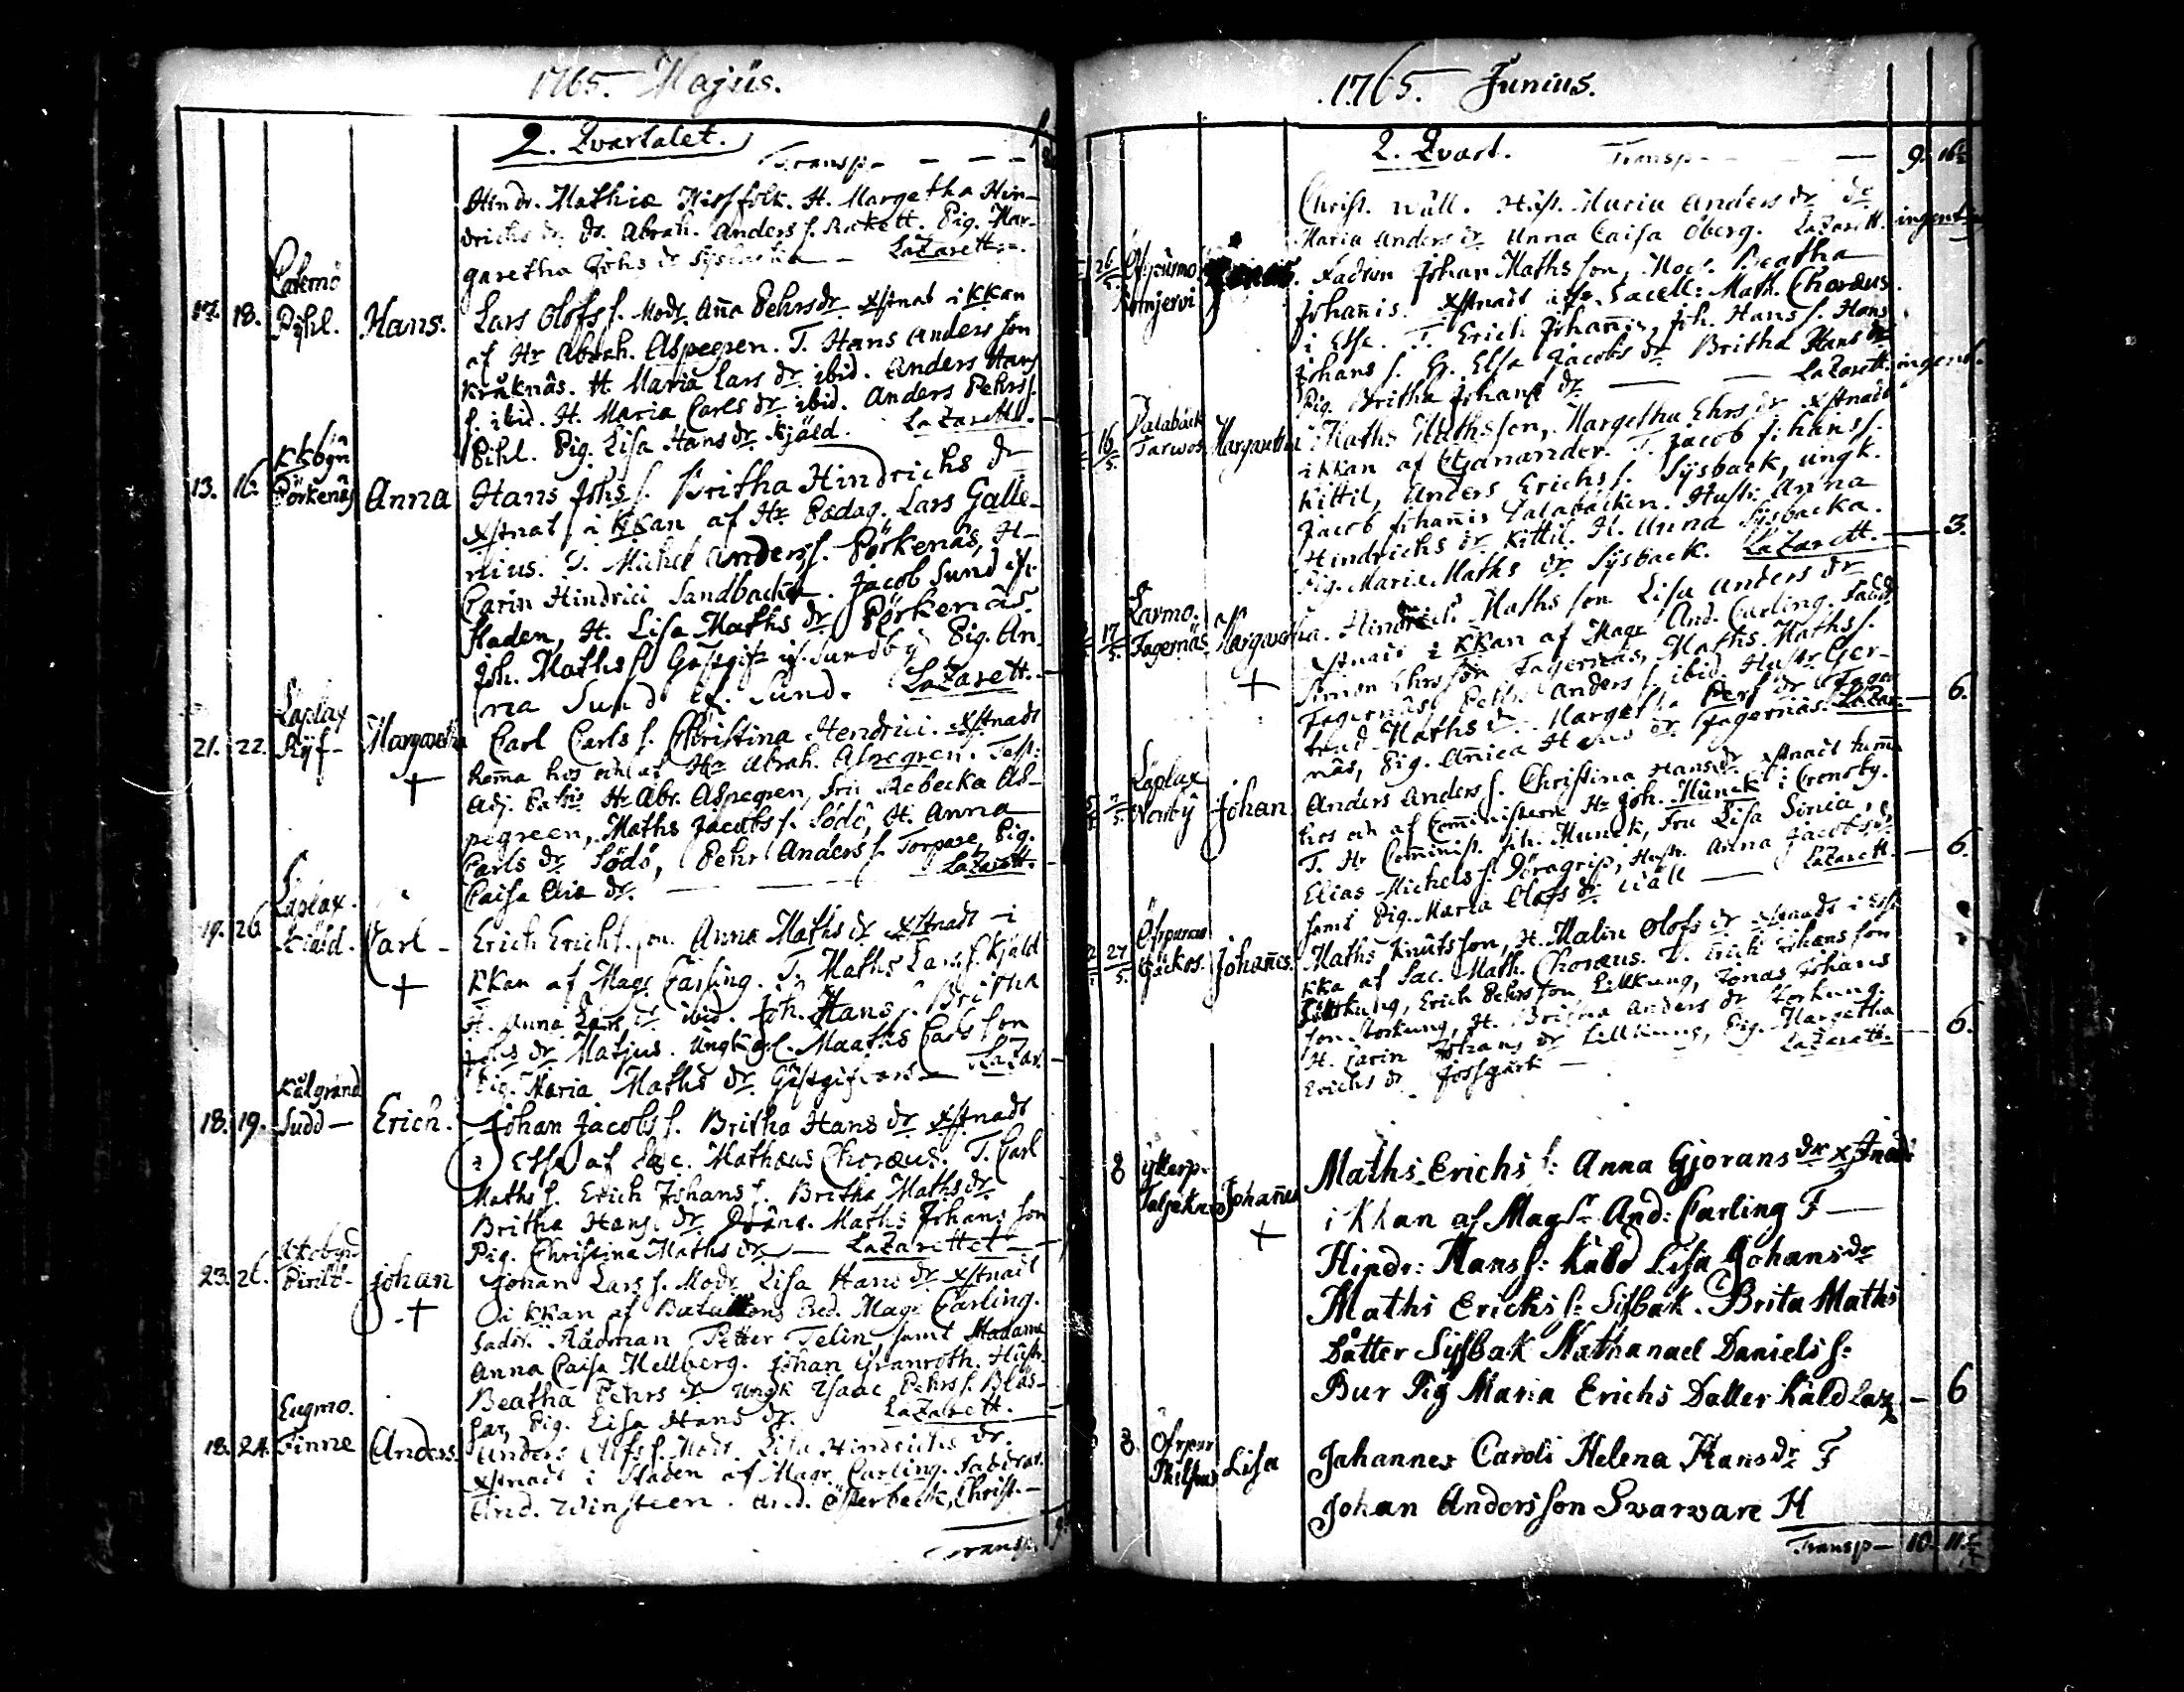 1765. Majus.
2. Qvartalet.
Transp-
Hindr. Mathiæ Hirsfolk. H. Margetha Hin-
drichs dr. Abrah. Anders s. Rakett. Pig. Mar-
garetha Johs dr Sysbacka - Lazarett.
17. 18. Pihl. Hans. Lars Olofs s. Modr Anna Pehrsdr xstnat i KKan
af Hr Abrah. Aspegren. T. Hans Anders son
Kråknäs. H. Maria Lars dr ibid. Anders Hans
s. ibid. H. Maria Carls dr ibid. Anders Pehrs s.
Pihl. Pig. Lisa Hans dr Kjäld. Lazarett.
KKbyn
13. 16. Pörkenäs Anna Hans Johs s. Britha Hindrichs dr
xstnat i KKan af Hr Pædag. Lars Galle-
nius. T. Michel Anderss. Pörkenäs, H-
Carin Hindrici Sandbacka. Jacob Sund if.
Staden, H. Lisa Maths dr Pörkenäs.
Joh. Mathss. Gästgif. if. Sundby Pig. An-
na Sund if. Sund. Lazarett.
Laplax
21. 22. Ryf- Margaretha + Carl Carls s. Christina Hendrici. xstnadt
hema hos och af Hr Abrah. Aspegren. Test:
Adj. Hr Abr. Aspegren, Fru Rebecka As-
pegreen, Maths Jacobs s. Södö, H. Anna
Carls dr Södö, Pehr Anders s. Torpare, Pig.
Caisa dr. Lazarett.
Laplax.
19. 26. Kiäld. Carl - + Erich Erichs son. Anna Maths dr xstnadt i
KKan af Magr Carling. T. Maths Lars s. Kjäld
H. Anna Lars dr ibid. Joh. Hans s. Britha
Johs dr Matjus. Ungk. Maths Carls son
Pig. Maria Maths dr Gästgifvars Lazar.
Kålgränd
18. 19. Sudd - Erich. Johan Jacobs s. Britha Hans dr xstnadt
i Esse af Sac. Mathæus Choræus. T. Carl
Maths s. Erich Johans s. Britha Maths dr
Britha Hans dr. Maths Johans son
Pig. Christina Maths dr - Lazarettet
23. 26. Johan + Johan Lars s. Modr. Lisa Hans dr xstnadt
i KKan af Bataillons Pred. Magr Carling.
Faddr. Rådman Petter Telin samt Madame
Anna Caisa Hellberg. Johan Granroth. Hustr.
Beatha Pehrs dr Ungk Isaac Pehrs s. Blås-
sar, Pig. Lisa Hans dr. Lazarett.
Eugmo.
18. 24. Finne Anders Anders Olofs s. Modr. Lisa Hindrichs dr.
xstnadt i Staden af Magr. Carling. Faddrar.
And. Winsteen. And. Österbeck, Christ.
Transp.
1765. Junius.
2. Qvart. Transp- 9. 16
Christ. Wäll. Hust. Maria Anders dr
Maria Anders dr Anna Caisa Öberg. Lazarett. ingenting
26/5. Öfpurmo Fadren Johan Maths son, Modr. Beatha
Johanis. xstnadt af Sacell: Math. Choræus.
i Esse. T. Erich Johannis, Joh. Hans s. Hans
Johans s. Elsa Jacobs dr Britha Hans dr
Pig. Britha Johans dr Lazarett. ingent.
Palaback
16/5. Tarwos. Margaretha Maths Mathsson, Margetha Ehrs dr xstnadt
i KKan af Ganander. T. Jacob Johans s.
Kittil, Anders Erichs s. Sysback, ungk.
Jacob Johannis Palabacken. Hustr. Anna
Hindrichs dr Kittil. H. Anna Sysbacka.
Pig. Maria Maths dr Sysback. Lazarett. 3.
Larmo.
17/5. Fagernäs Margaretha. + Hindrich Maths son Lisa Anders dr
xstnadt i KKan af Magr And. Carling. Faddr.
Simon Ehrsson Fagernäs, Maths Maths s.
Fagernäs, Pehr Anders s. ibid. Hustr Ger-
trud Maths dr. Margetha Pers dr Fager
näs, Pig. Annica Hans dr Fagernäs. Lazar. 6.
Laplax
7/5. Norrby Johan Anders Anders s. Christina Hansdr. xstnadt hemma
hos och af Comministern Hr Joh. Munck i Cronoby.
T. Hr Comminist. Joh. Munck, Fru Lisa Siricia,
Elias Michels s. Döragrip, Hustr. Anna Jacobsdr
samt Pig. Maria Olofs dr Wäll Lazarett. 6.
Öfpurmo
27/5. Gäckos. Johannes. Maths Knutsson, H. Malin Olofs dr xstnadt i Esse
KKa af Sac. Math. Choræus. T. Erich Johans son
Lillkung, Erich Pehrsson Lillkung, Jonas Johans
son Storkung, H. Britha Anders dr Storkung.
H. Carin Johans dr Lillkung, Pig. Margetha
Erichs dr Forsgård - Lazarett. 6.
8 ytterp. Johannes + Maths Erichs s: Anna Gjorans dr xstnadt
i KKan af Magr And: Carling F
Hindr: Hans s: Kåld Lisa Johans dr
Maths Erichs s: Sisbak. Brita Maths
Dåtter Sysbak Nathanael Daniels s:
Bur Pig Maria Erichs Dotter Kåld Laz 6
8. Öfrpur Lisa Johannes Caroli Helena Hans dr F
Johan Andersson Svarvare H
Transp- 10 11